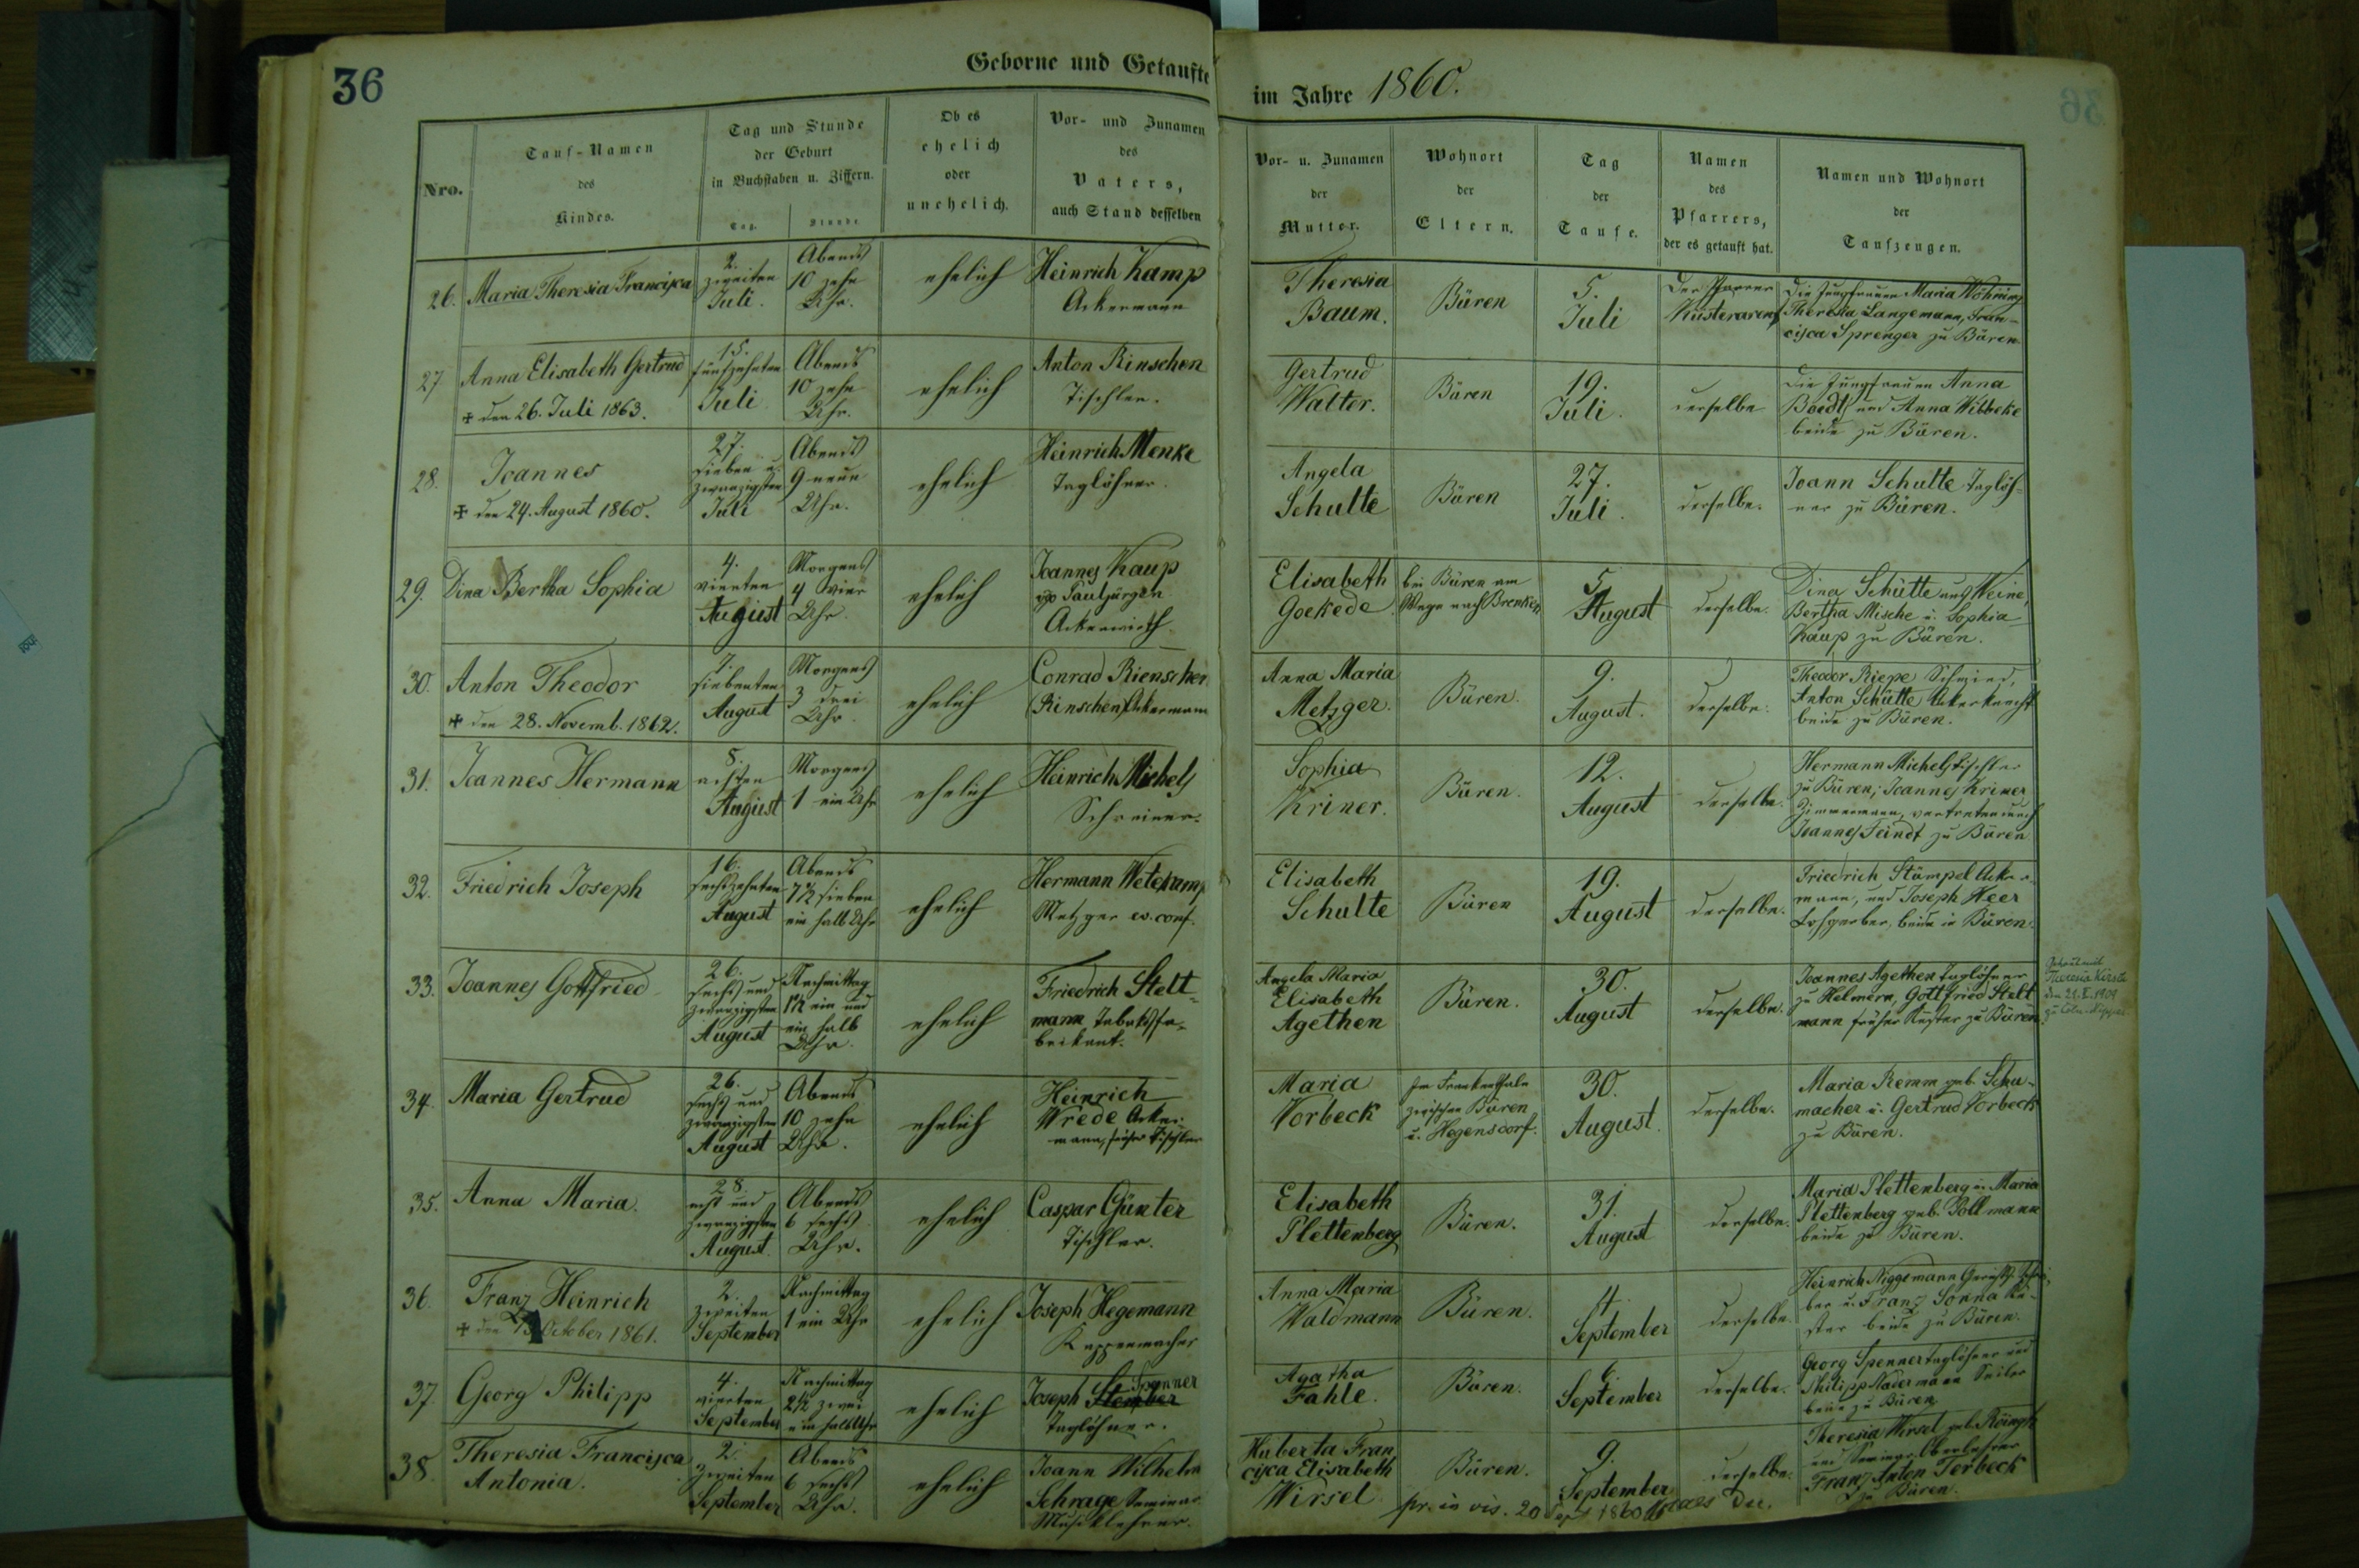 36
Geborne und Getaufte im Jahre 1860.
Nro.
Tauf-Namen
des
Kindes.
Tag und Stunde
der Geburt
in Buchstaben u. Ziffern.
Tag. Stunde
Ob es
ehelich
oder
unehelich.
Vor- und Zunamen
des
Vaters,
auch Stand desselben
Vor- u. Zunamen
der
Mutter.
Wohnort
der
Eltern.
Tag
der
Taufe.
Namen
des
Pfarrers,
der es getauft hat.
Namen und Wohnort
der
Taufzeugen.
26.
Maria Theresia Francisca
2.
zweiten
Juli.
Abends
10 zehn
Uhr.
ehelich
Heinrich Kamp
Ackermann
Theresia
Baum.
Büren
5.
Juli
Der Pfarrer
Küsterarens
Die Jungfrauen Maria
Theresia Langemann, Fran-
cisca Sprenger zu Büren
27
Anna Elisabeth Gertrud
+ den 26. Juli 1863.
15.
fünfzehnten
Juli
Abends
10 zehn
Uhr.
ehelich
Anton Rinschen
Tischler.
Gertrud
Walter.
Büren
19.
Juli.
derselbe
Die Jungfrauen Anna
und Anna Wibbeke
beide zu Büren.
28.
Joannes
+ den 24. August 1860.
27.
sieben u.
zwanzigsten
Juli
Abends
9 neun
Uhr.
ehelich
Heinrich Menke
Taglöhner.
Angela
Schulte
Büren
27.
Juli.
derselbe.
Joann Schulte Taglöh-
ner zu Büren.
29.
Dina Bertha Sophia
4.
vierten
August
Morgens
4 vier
Uhr.
ehelich
Joannes Kaup
Pauljürgen
Ackerwirth
Elisabeth
Goekede
bei Büren am
Wege nach Brenken
5.
August
derselbe.
Dina Schütte aus Weine,
Bertha Mische u. Sophia
Kaup zu Büren.
30.
Anton Theodor
+ den 28. Novemb. 1862.
7.
siebenten
August
Morgens
3 drei
Uhr.
ehelich
Conrad Rienschen
(Rinschen) Ackermann
Anna Maria
Metzger
Büren.
9.
August.
derselbe.
Theodor Riepe Schmied,
Anton Schütte Ackerknecht
beide zu Büren.
31.
Joannes Hermann
8.
achten
August
Morgens
1 ein Uhr
ehelich
Heinrich Michels
Schreiner.
Sophia
Kriner.
Büren.
12.
August
derselbe.
Hermann Michels Tischler
zu Büren; Joannes Kriner
Zimmermann, vertreten durch
Joannes Feindt zu Büren
32.
Friedrich Joseph
16.
sechszehnten
August
Abends
7½ sieben
ein halb Uhr
ehelich
Hermann Wetekamp
Metzger ev. conf.
Elisabeth
Schulte
Büren
19.
August
derselbe.
Friedrich Stümpel Acker-
mann, und Joseph Heer
Lohgerber, beide in Büren.
33.
Joannes Gottfried
26.
sechs und
zwanzigsten
August
Nachmittag
1½ ein und
ein halb
Uhr.
ehelich
Friedrich Stelt-
mann Tabaksfa-
brikant.
Angela Maria
Elisabeth
Agethen
Büren.
30.
August
derselbe.
Joannes Agethen Taglöhner
zu Helmern, Gottfried Stelt
mann früher Küster zu Büren.
Theresia
1909
zu Cöln-Nippes
34.
Maria Gertrud
26.
sechs und
zwanzigsten
August
Abends
10 zehn
Uhr.
ehelich
Heinrich
Wrede Acker-
mann, früher Tischler
Maria
Vorbeck
Im Frankenthale
zwischen Büren
u. Hegensdorf.
30.
August.
derselbe.
Maria Remm geb. Schu-
macher u. Gertrud Vorbeck
zu Büren.
35.
Anna Maria.
28.
acht und
zwanzigsten
August
Abends
6 sechs
Uhr.
ehelich
Caspar Günter
Tischler.
Elisabeth
Plettenberg
Büren.
31.
August
derselbe.
Maria Plettenberg u. Maria
Plettenberg geb. Pollmann
beide zu Büren.
36.
Franz Heinrich
+ den October 1861.
2.
zweiten
September
Nachmittag
1 ein Uhr
ehelich
Joseph Hegemann
Kappenmacher
Anna Maria
Waldmann
Büren.
4.
September
derselbe.
Heinrich Niggemann Gerichts
u. Franz Sonna Kü-
ster beide zu Büren.
37.
Georg Philipp
4.
vierten
September
Nachmittag
2½ zwei
ein halb Uhr
ehelich
Spenner
Joseph
Taglöhner.
Agatha
Fahle.
Büren.
6.
September
derselbe.
Georg Spenner Taglöhner und
Philipp Nadermann Seiler
beide zu Büren
38.
Theresia Francisca
Antonia.
2.
zweiten
September
Abends
6 sechs
Uhr.
ehelich
Joann Wilhelm
Schrage Seminar
Musiklehrer.
Huberta Fran
cisca Elisabeth
Wirsel
Büren.
9.
September
derselbe.
Theresia Wirsel geb.
und Seminar Oberlehrer
Franz Anton Terbeck
zu Büren.
pr. in vis. 20 Sept 1860